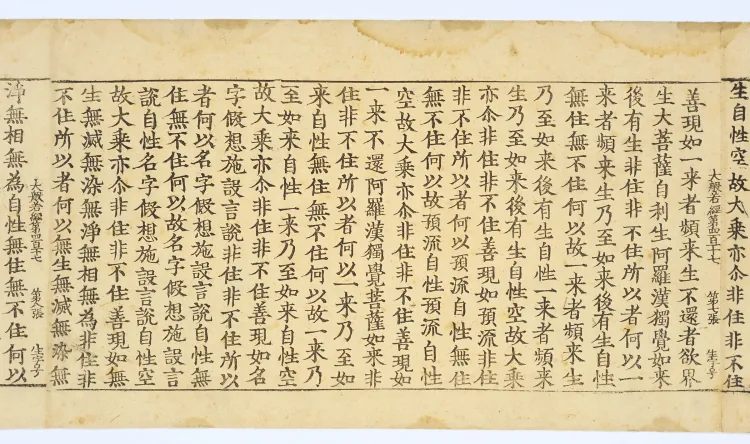 生自性空故大乘亦尒非住非不住
大般若經第四百十七 第七張 生
善現如一來者頻來生不還者欲界
生大菩薩自利生阿羅漢獨覺如來
後有生非住非不住所以者何以一
來者頻來生乃至如來後有生自性
無住無不住何以故一來者頻來生
乃至如來後有生自性一來者頻來
生乃至如來後有生自性空故大乘
亦尒非住非不住善現如預流非住
非不住所以者何以預流自性無住
無不住何以故預流自性預流自性
空故大乘亦尒非住非不住善現如
一來不還阿羅漢獨覺菩薩如來非
住非不住所以者何以一來乃至如
來自性無住無不住何以故一來乃
至如來自性一來乃至如來自性空
故大乘亦尒非住非不住善現如名
字假想施設言說非住非不住所以
者何以名字假想施設言說自性無
住無不住何以故名字假想施設言
說自性名字假想施設言說自性空
故大乘亦尒非住非不住善現如無
生無滅無染無淨無相無為非住非
不住所以者何以無生無滅無染無
大般若經第四百十七 第八張 生
淨無相無為自性無住無不住何以